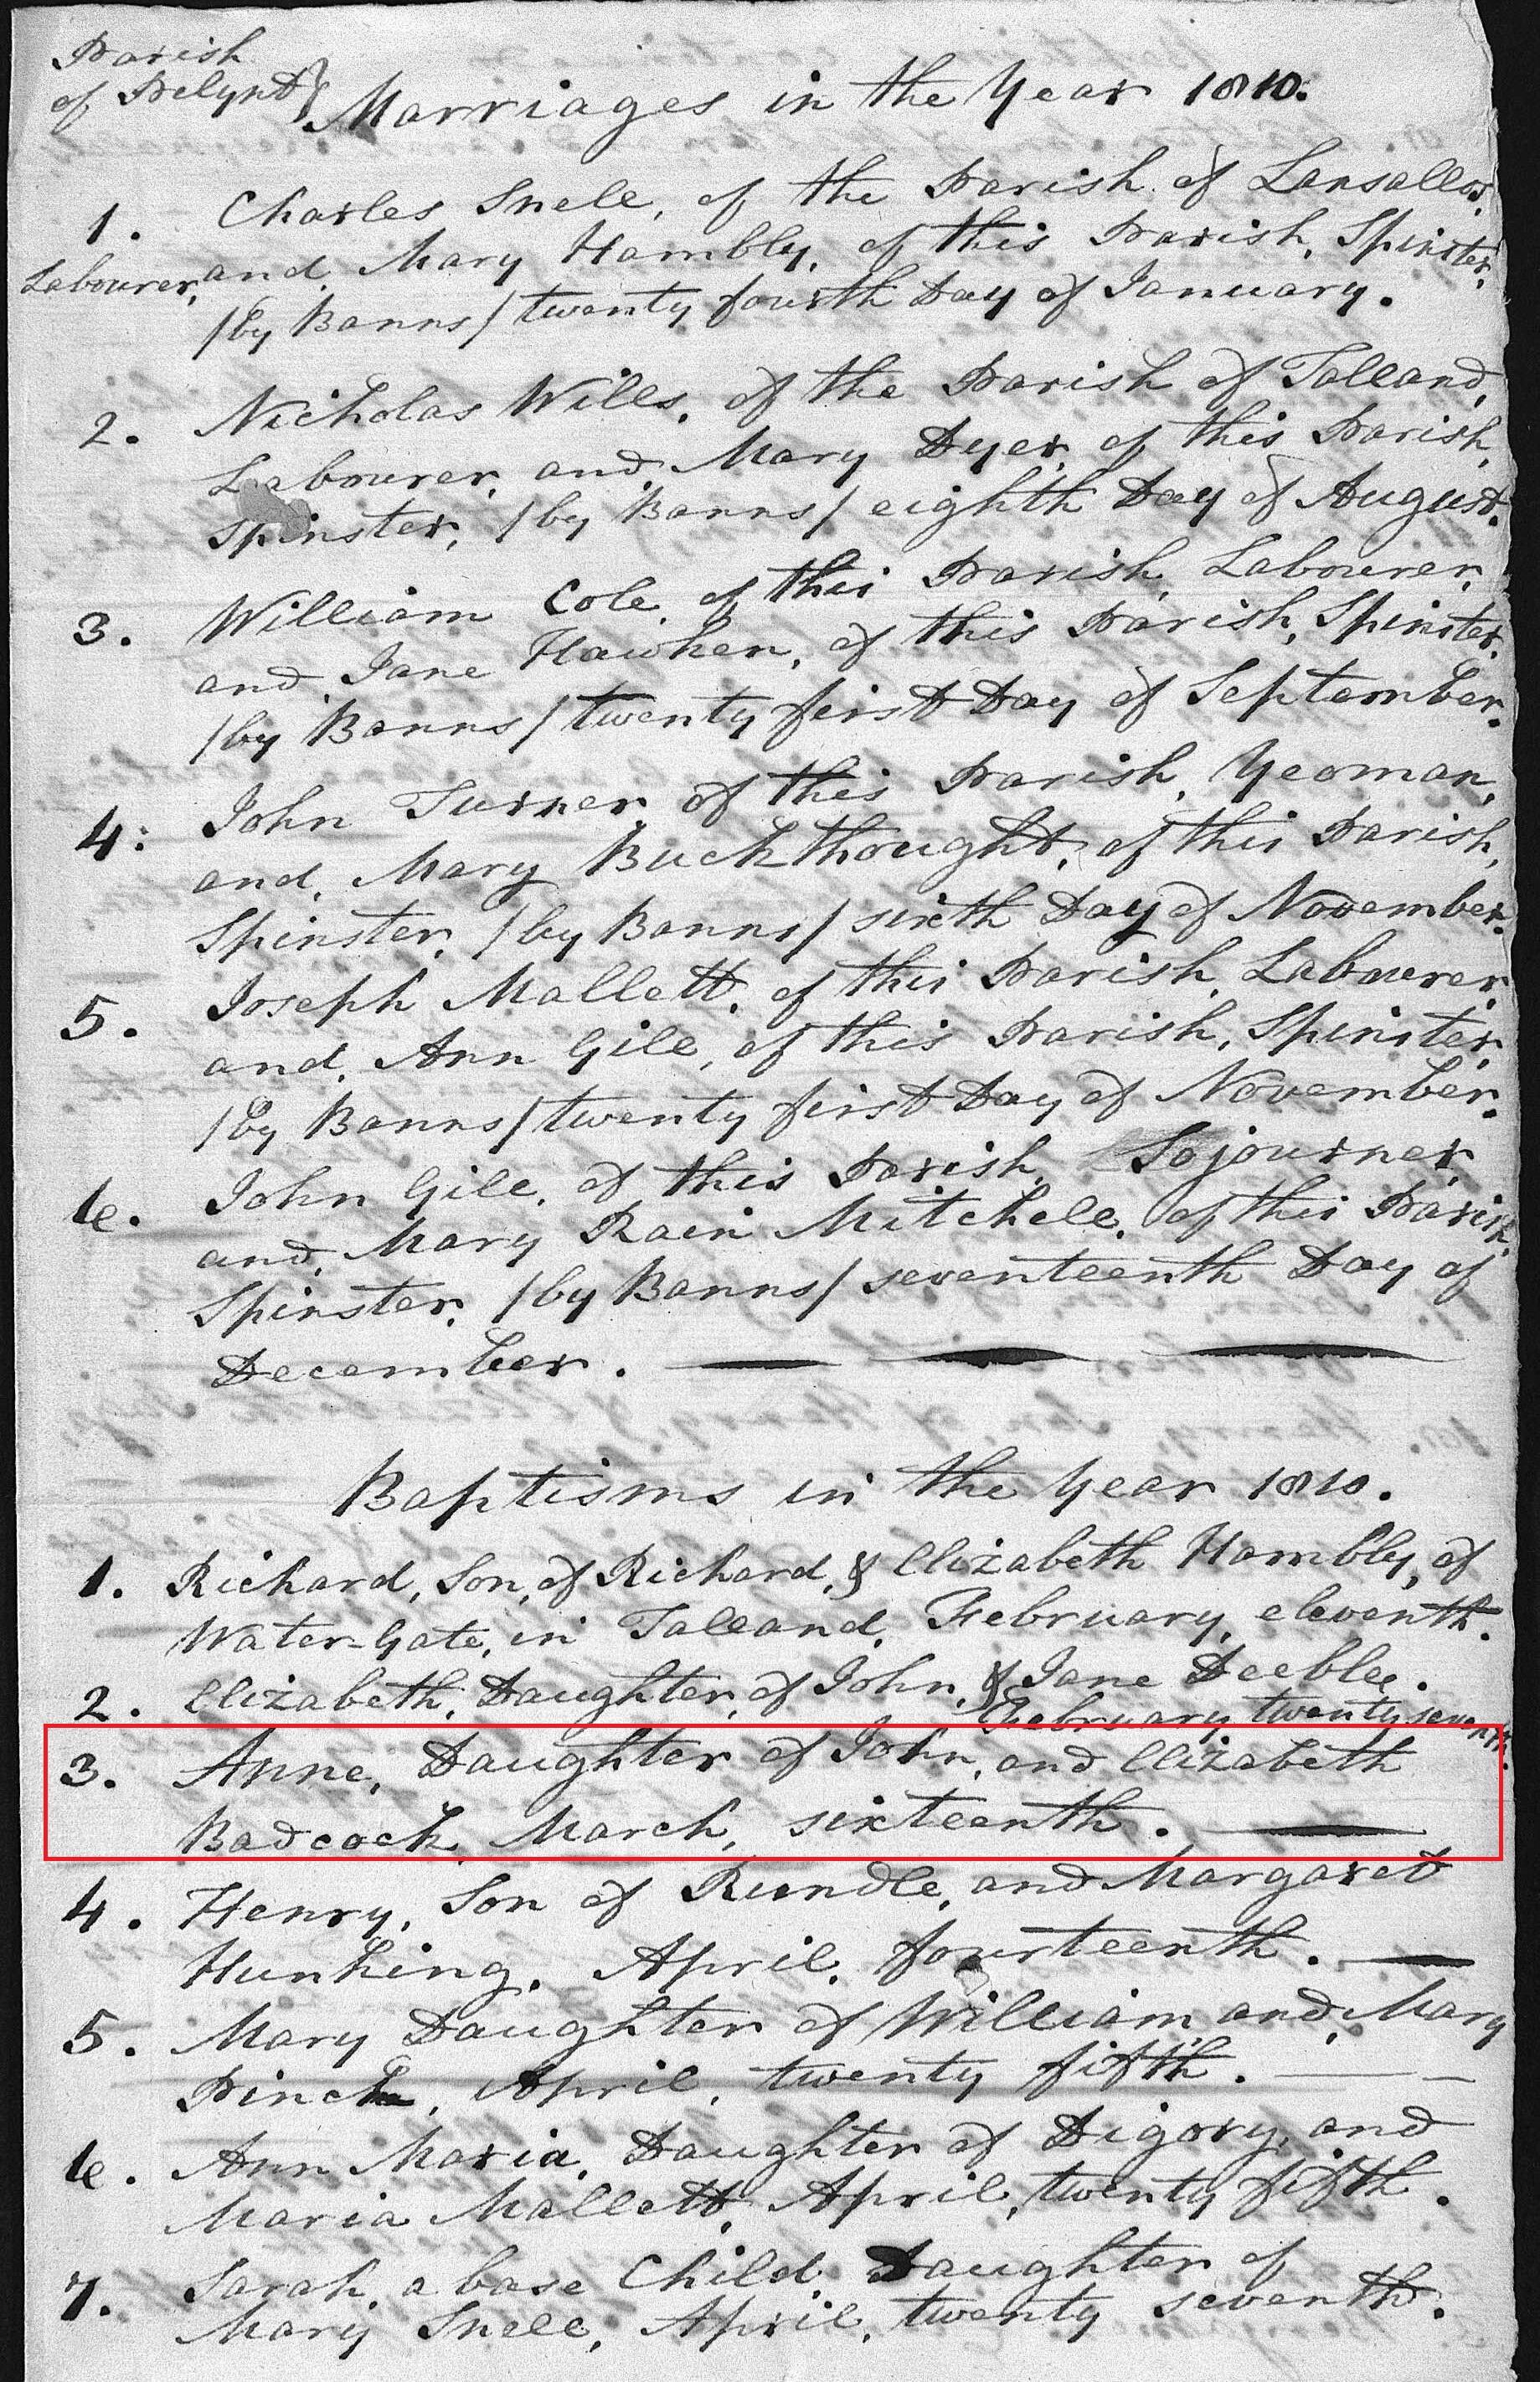 Parish
of Pelynt}
Marriages in the Year 1810.
1. Charles Snell, of the Parish of Lansallos,
Labourer, and, Mary Hambly, of this Parish, Spinster,
/by Banns/ twenty fourth Day of January.
2. Nicholas Wills, of the Parish of Talland,
Labourer, and, Mary Dyer, of this Parish,
Spinster, /by Banns/ eighth Day of August.
3. William Cole, of this Parish, Labourer,
and, Jane Hawken, of this Parish, Spinster,
/by Banns/ twenty first Day of September.
4: John Turner, of this Parish, Yeoman,
and, Mary Buckthought, of this Parish,
Spinster, /by Banns/ sixth Day of November.
5. Joseph Mallett, of this Parish, Labourer,
and, Ann Gill, of this Parish, Spinster,
/by Banns/ twenty first Day of November.
6. John Gill, of this Parish, Sojourner,
and, Mary Rain Mitchell, of this Parish,
Spinster, /by Banns/ seventeenth Day of
December.
Baptisms in the Year 1810.
1. Richard, Son, of Richard, & Elizabeth Hambly, of
Water-Gate, in Talland, February, eleventh.
2. Elizabeth, Daughter, of John, & Jane Deeble.
February twenty seventh.
3. Anne, Daughter of John, and Elizabeth
Badcock, March, sixteenth.
4. Henry, Son of Rundle, and Margaret
Hunking. April, fourteenth.
5. Mary Daughter of William and, Mary
Pinch, April, twenty fifth.
6. Ann Maria, Daughter of Digory, and
Maria Mallett, April, twenty fifth.
7. Sarah, a base Child, Daughter of
Mary Snell, April, twenty seventh.